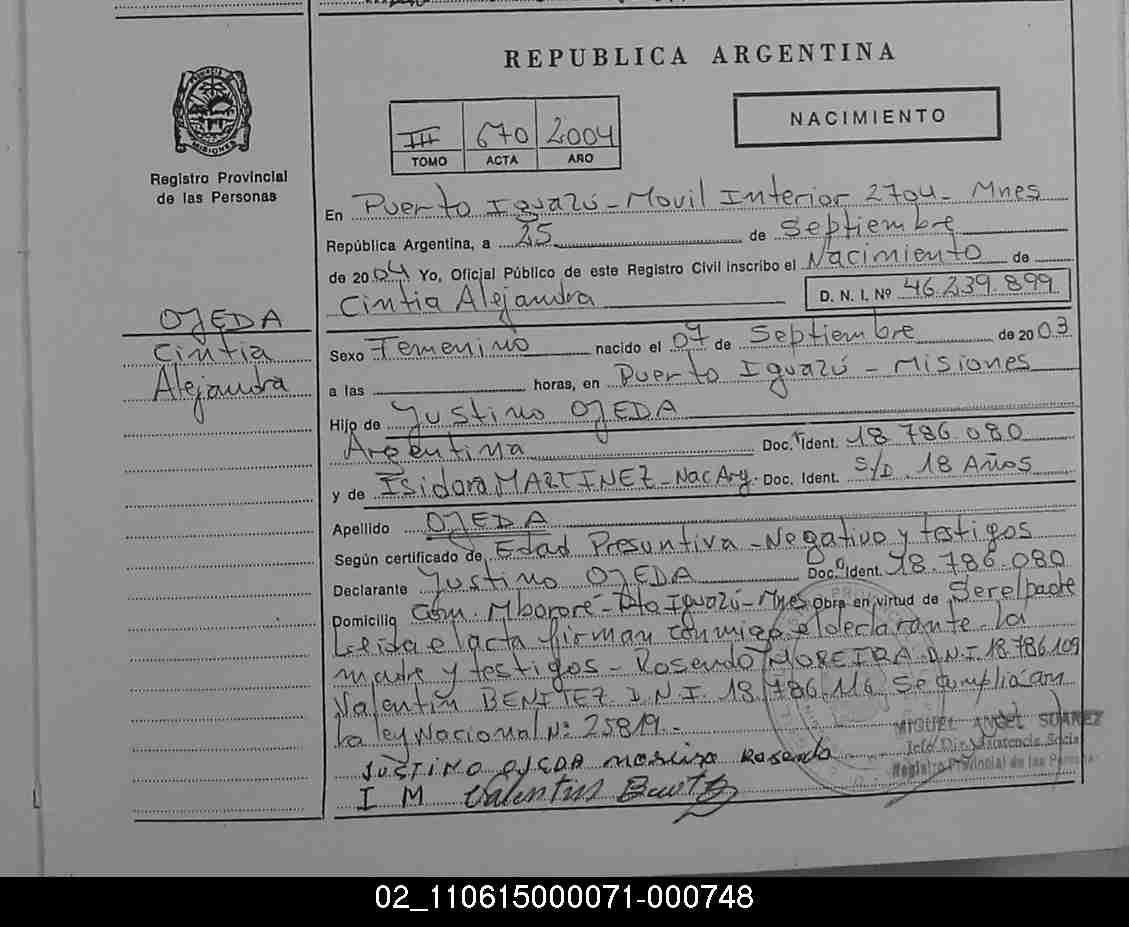 REPUBLICA ARGENTINA
III 670 2004
TOMO ACTA AÑO
NACIMIENTO
Registro Provincial
de las Personas
En Puerto Iguazú - Movil Interior 2704 - Mnes
República Argentina, a 25 de Septiembre
de 2004 Yo, Oficial Público de este Registro Civil inscribo el Nacimiento de
Cintia Alejandra D. N. I. Nº 46.239.899
OJEDA
Cintia
Alejandra
Sexo Femenino nacido el 07 de Septiembre de 2003
a las horas, en Puerto Iguazú - Misiones
Hijo de Justino OJEDA
Argentina Doc. Ident. 18.786.080
y de Isidora MARTINEZ - Nac Arg. Doc. Ident. S/D. 18 Años
Apellido OJEDA
Según certificado de Edad Presuntiva - Negativo y testigos
Declarante Justino OJEDA Doc. Ident. 18.786.080
Domicilio Com. Mbororé - Pto Iguazú - Mnes Obra en virtud de Ser el padre
Leida el acta firman conmigo el declarante la
madre y testigos - Rosendo MOREIRA D.N.I. 18.786.109
Valentin BENITEZ D.N.I. 18.786.116 Se cumplió con
la ley Nacional Nº 25819.-
JUSTINO OJEDA Rosendo
I M Valentin Benitez
MIGUEL ANGEL SUAREZ
Registro Provincial de las Personas
02_110615000071-000748